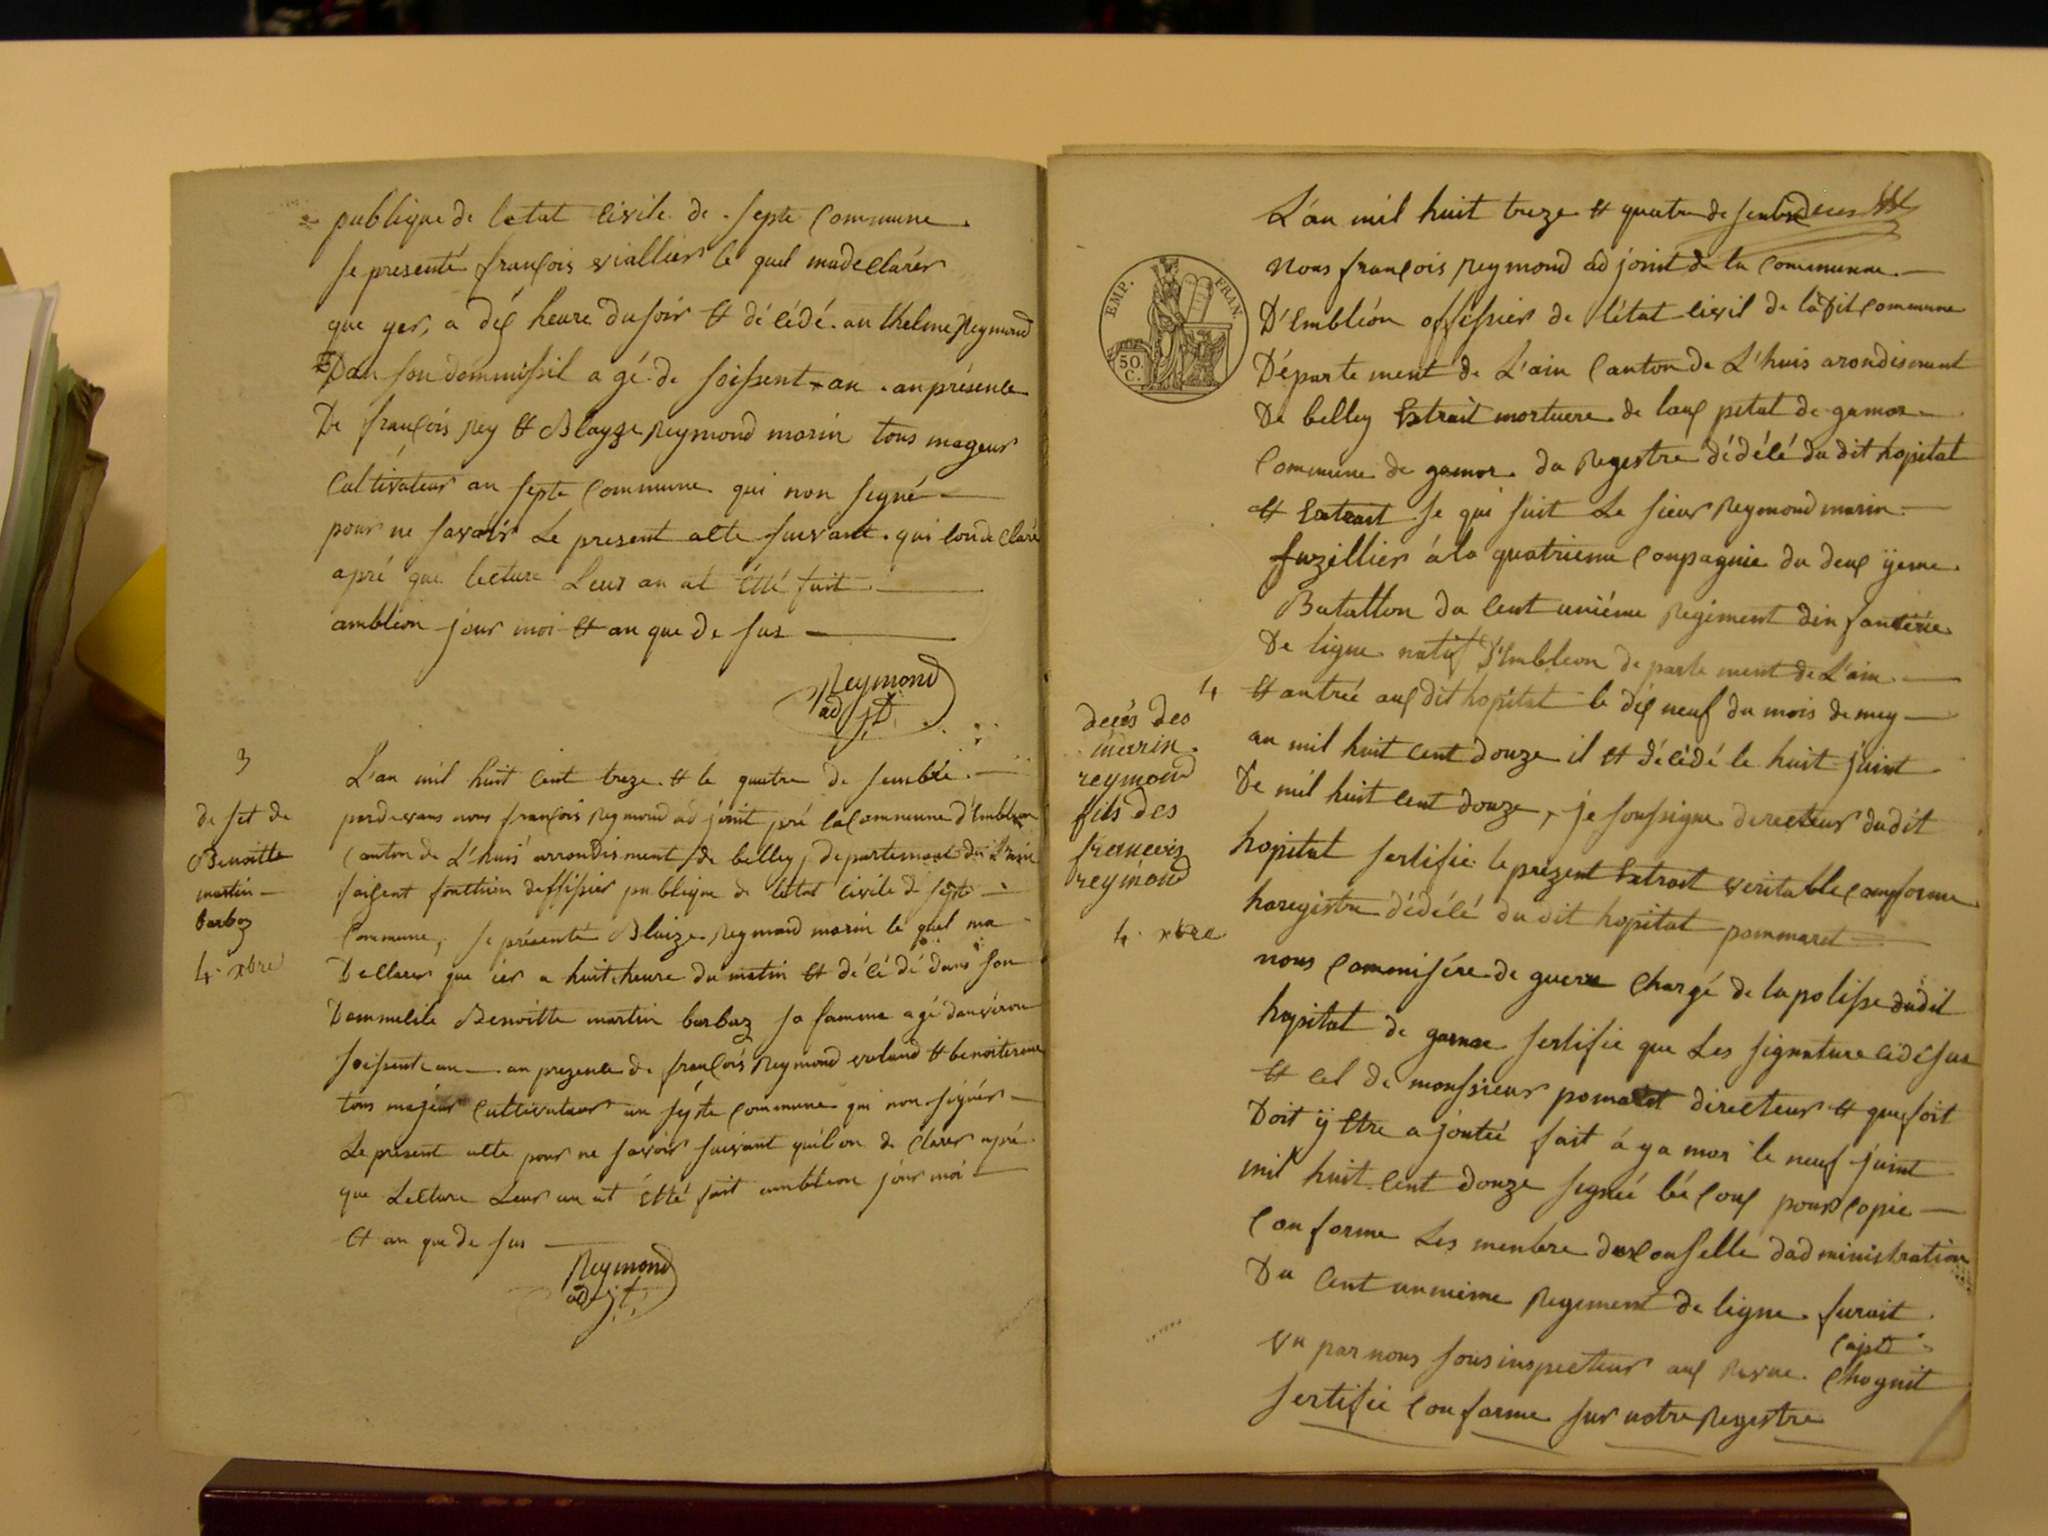 publique de letat civile de septe commune
se presenté françois viallier le quel madeclarér
que yer, a déx heure du soir et dé cédé an thelme Reymond
Dan son dommissil a gé de soissent an . an présence
De françois Rey et Blayze Reymond marin tous mageur
Cultivateur an septe Commune qui non segné
pour ne savoir Le present acte suivant . qui londe claré
apré que lecture Leur an at étté fait
ambléon jour moi et an que de sus
Reymond
adjt
3
de set de
Benoitte
martin
barboz
4. xbre
L'an mil huit cent treze et le quatre de sembre
pardevans nous françois Reymond ad joint pré la Commune d'Embléon
Canton de L'huis arrondisment de belley, departement de L'ain
faisent fonction deffisier publique de létat civile de septe
Commune, se présenté Blaize Reymond marin le quel ma
Declarer que ier a huit heure du matin et dé cé dé dans son
Dommecile Benoitte martin barboz sa famme agé danviron
soissente an an prezence de françois Reymond voland et benoit
tous majeur cultivateur an septe commune qui non signér
Le present acte pour ne savoir suivant quil on de clarer apré
que Lecture Leur an at étté fait ambléon jour moi
et an que de sus
Reymond
adjt
L'an mil huit treze et quatre de sembre
Nous françois Reymond ad joint de la Commune
D'Embléon offissier de l'état civil de ladit Commune
EMP. FRAN.
50 C.
Département de L'ain Canton de L'huis arondisment
De belley Extrait mortuere de laux pital de gamor
Commune de gamor . du Regestre dédélé du dit hopital
et Extrait se qui suit Le sieur Reymond marin
fuzillier á la quatrieme Conpagnie du deux yeme
Batallon du Cent uniéme Regiment din fanterie
De ligne natif d'Embléon departe ment de L'ain
4
decés des
marin
reymond
fils des
francois
reymond
4. xbre
et antrée aux dit hopital le dix neuf du mois de mey
an mil huit cent douze il et décédé le huit juint
De mil huit cent douze, je soussigne directeur dudit
hopital sertifie le prezent Extrait veritable conforme
haregistre dédélé du dit hopital pommaret
nous Commisére de guerre Chargé de la polisse dudit
hopital de gamor sertifie que Les signature cidésus
et cel de monssieur pomaret directeur et que foit
Doit ÿ Etre a joutée fait á ga mor le neuf juint
mil huit cent douze segnée pour Copie
Con forme Les menbre du Conselle dadministration
Du Cent unnieme Regement de ligne
vu par nous sous inspecteur aux Revue
sertifie Conforme sur notre Regestre